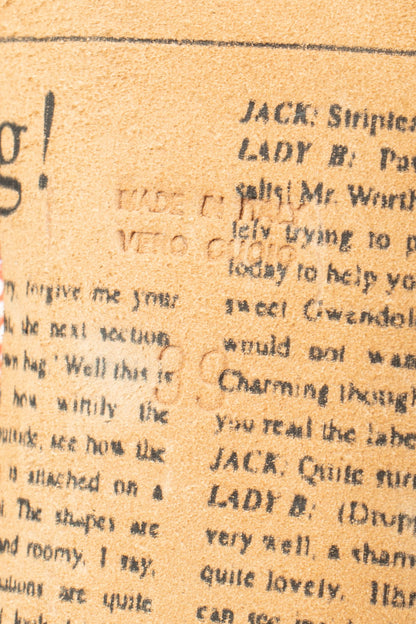 g!
MADE IN ITALY
VERO CUOIO
39
forgive me your
the next section
bag.' Well this is
how wittily the
see how the
is attached on a
The shapes are
and roomy, I say,
are quite
JACK: Striples
LADY B: Pa
salis! Mr. Worth
lely trying to p
today to help yo
sweet Gwendol
would not wan
Charming though
you read the labe
JACK: Quite sur
LADY B: (Dropp
very well, a sham
quite lovely.
can see